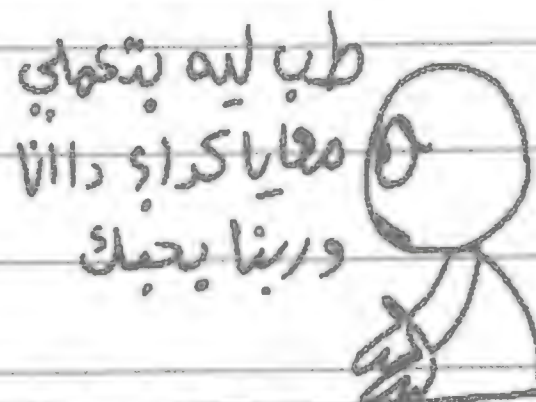 طب ليه بتتكهاي
معايا كدا؟ دا انا
وربنا بحبك